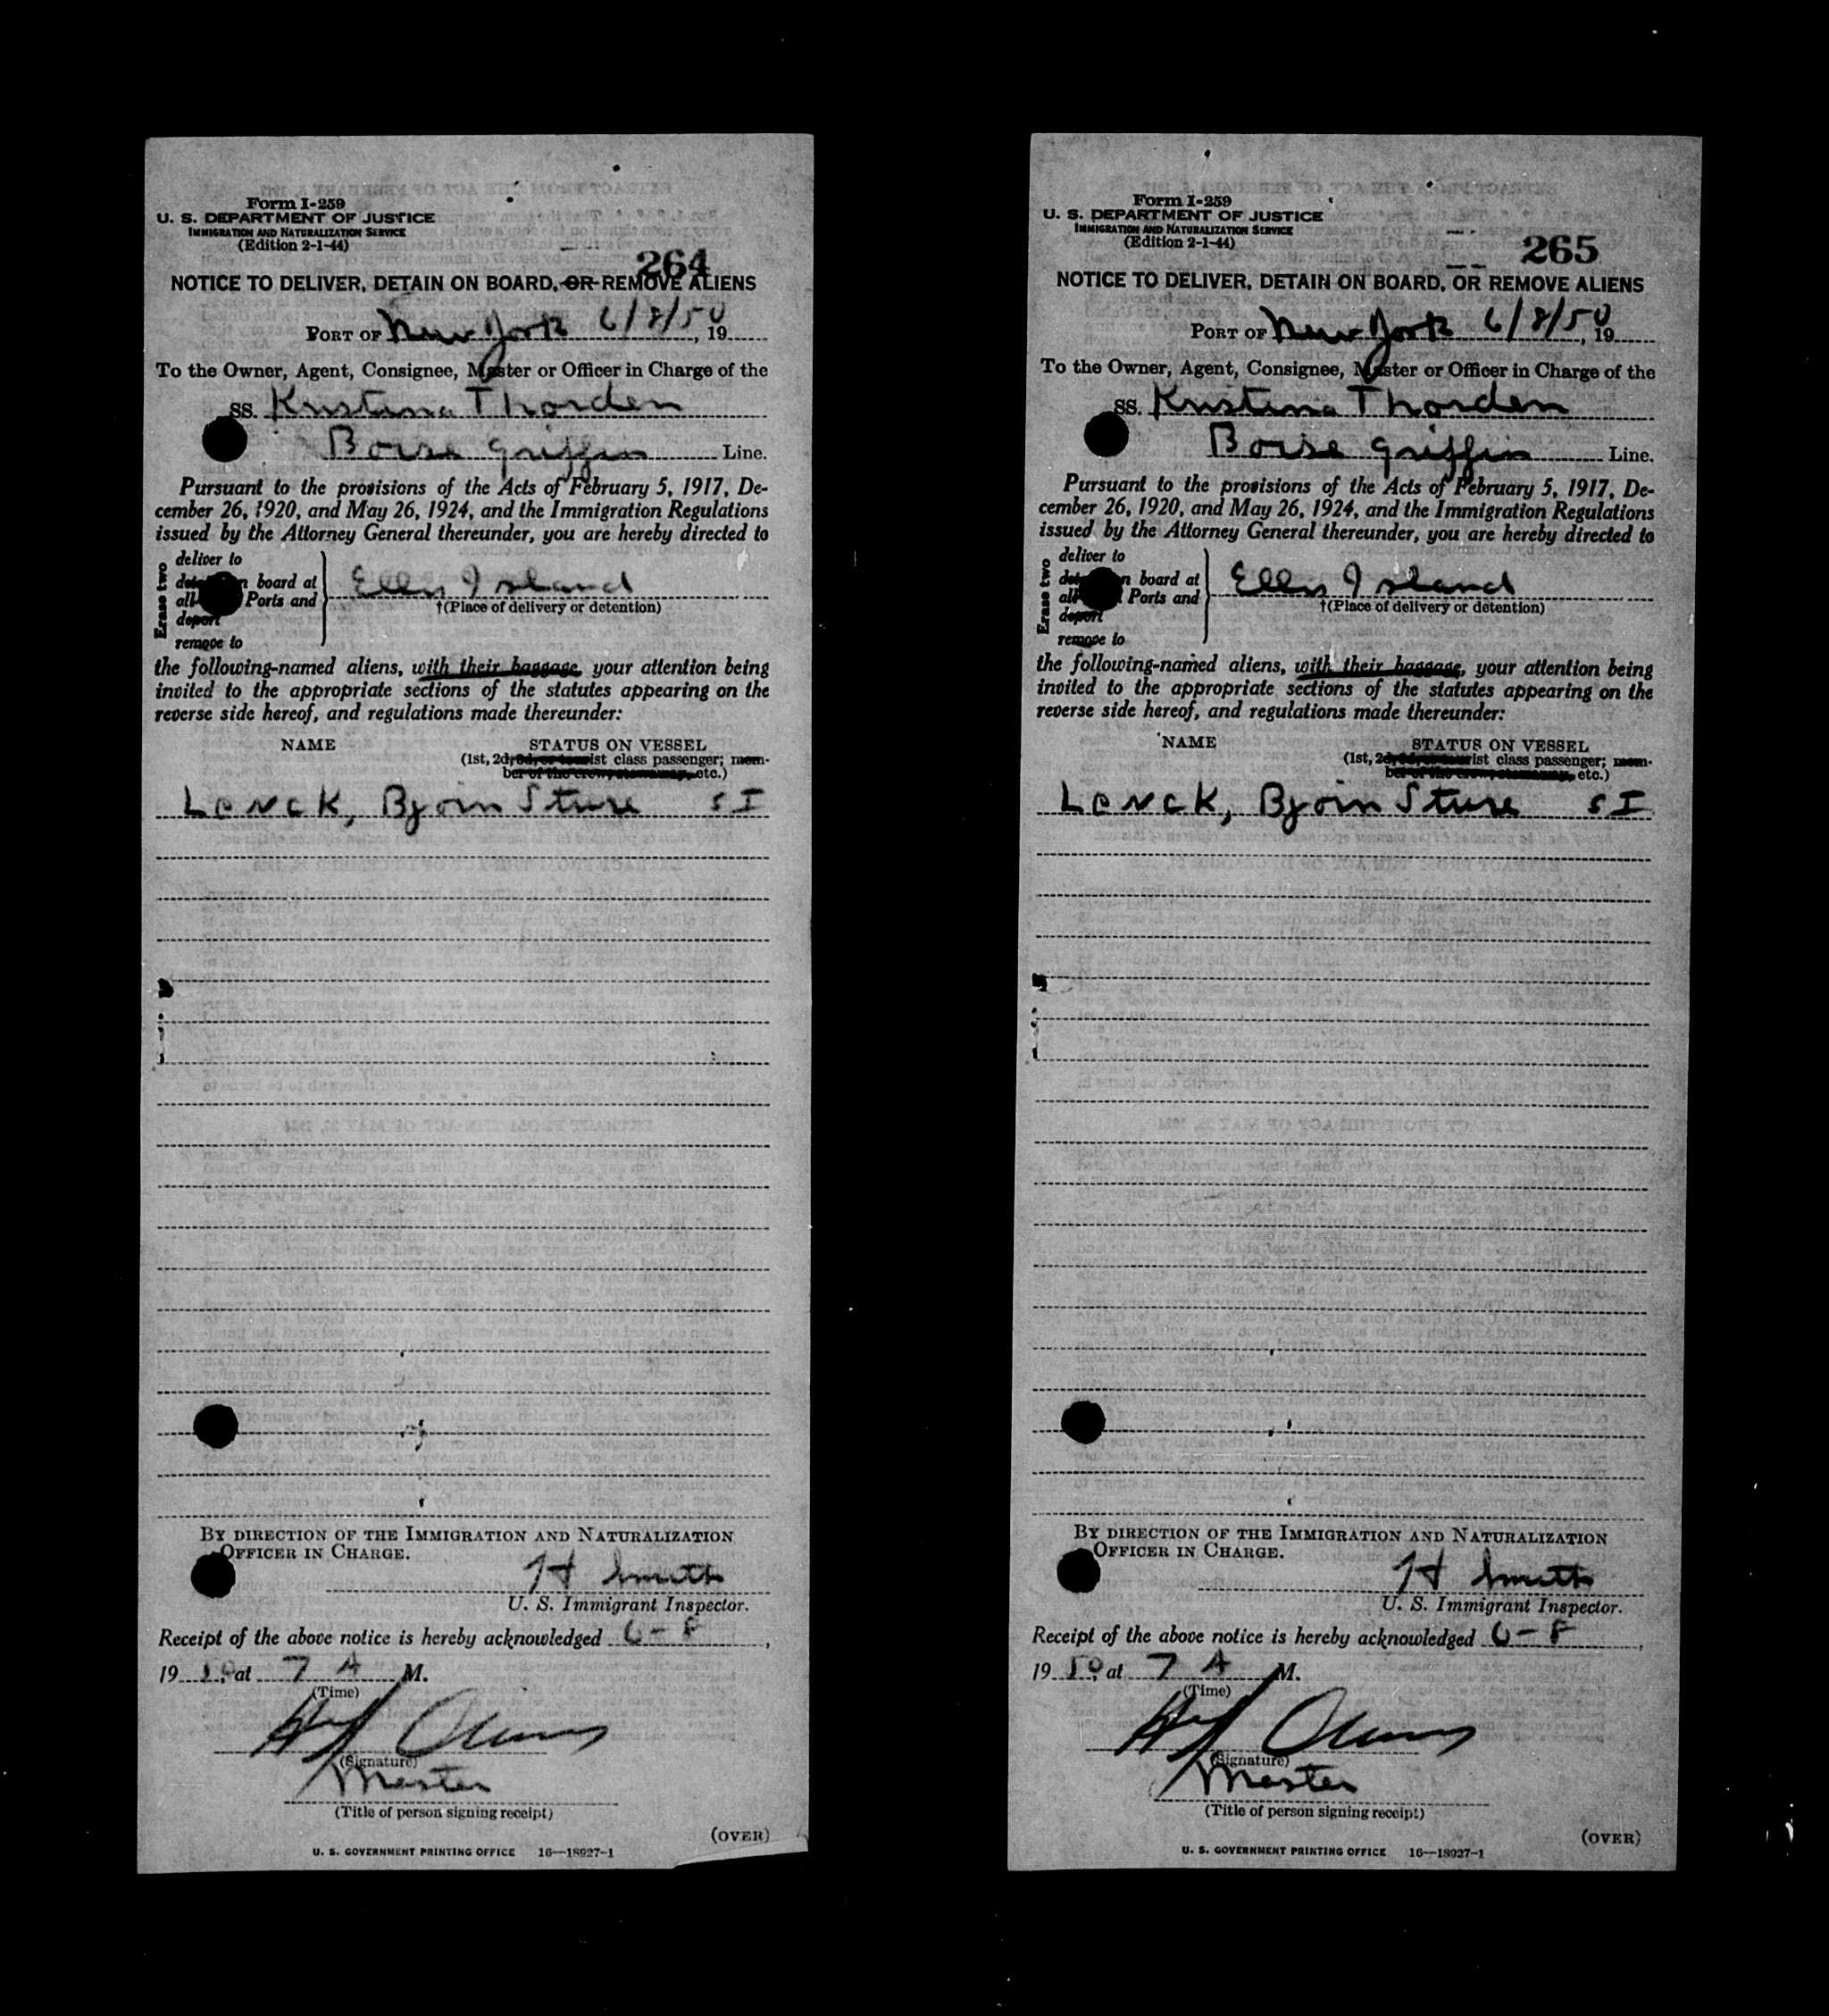 Form I-259
U. S. DEPARTMENT OF JUSTICE
IMMIGRATION AND NATURALIZATION SERVICE
(Edition 2-1-44)
264
NOTICE TO DELIVER, DETAIN ON BOARD, OR REMOVE ALIENS
PORT OF New York 6/8/50, 19
To the Owner, Agent, Consignee, Master or Officer in Charge of the
SS. Kristina Thorden
Boise Griffin Line.
Pursuant to the provisions of the Acts of February 5, 1917, De-
cember 26, 1920, and May 26, 1924, and the Immigration Regulations
issued by the Attorney General thereunder, you are hereby directed to
Erase two
deliver to
board at
all Ports and
deport
remove to
Ellis Island
†(Place of delivery or detention)
the following-named aliens, with their baggage, your attention being
invited to the appropriate sections of the statutes appearing on the
reverse side hereof, and regulations made thereunder:
NAME STATUS ON VESSEL
(1st, 2d, 3d, or tourist class passenger; mem-
ber of the crew, stowaway, etc.)
Lenck, Bjorn Sture SI
BY DIRECTION OF THE IMMIGRATION AND NATURALIZATION
OFFICER IN CHARGE.
H Smith
U. S. Immigrant Inspector.
Receipt of the above notice is hereby acknowledged 6-8,
1950, at 7 A M.
(Time)
(Signature)
Master
(Title of person signing receipt)
(OVER)
U. S. GOVERNMENT PRINTING OFFICE 16—18927-1
Form I-259
U. S. DEPARTMENT OF JUSTICE
IMMIGRATION AND NATURALIZATION SERVICE
(Edition 2-1-44)
265
NOTICE TO DELIVER, DETAIN ON BOARD, OR REMOVE ALIENS
PORT OF New York 6/8/50, 19
To the Owner, Agent, Consignee, Master or Officer in Charge of the
SS. Kristina Thorden
Boise Griffin Line.
Pursuant to the provisions of the Acts of February 5, 1917, De-
cember 26, 1920, and May 26, 1924, and the Immigration Regulations
issued by the Attorney General thereunder, you are hereby directed to
Erase two
deliver to
board at
all Ports and
deport
remove to
Ellis Island
†(Place of delivery or detention)
the following-named aliens, with their baggage, your attention being
invited to the appropriate sections of the statutes appearing on the
reverse side hereof, and regulations made thereunder:
NAME STATUS ON VESSEL
(1st, 2d, 3d, or tourist class passenger; mem-
ber of the crew, stowaway, etc.)
Lenck, Bjorn Sture SI
BY DIRECTION OF THE IMMIGRATION AND NATURALIZATION
OFFICER IN CHARGE.
H Smith
U. S. Immigrant Inspector.
Receipt of the above notice is hereby acknowledged 6-8,
1950, at 7 A M.
(Time)
(Signature)
Master
(Title of person signing receipt)
(OVER)
U. S. GOVERNMENT PRINTING OFFICE 16—18927-1